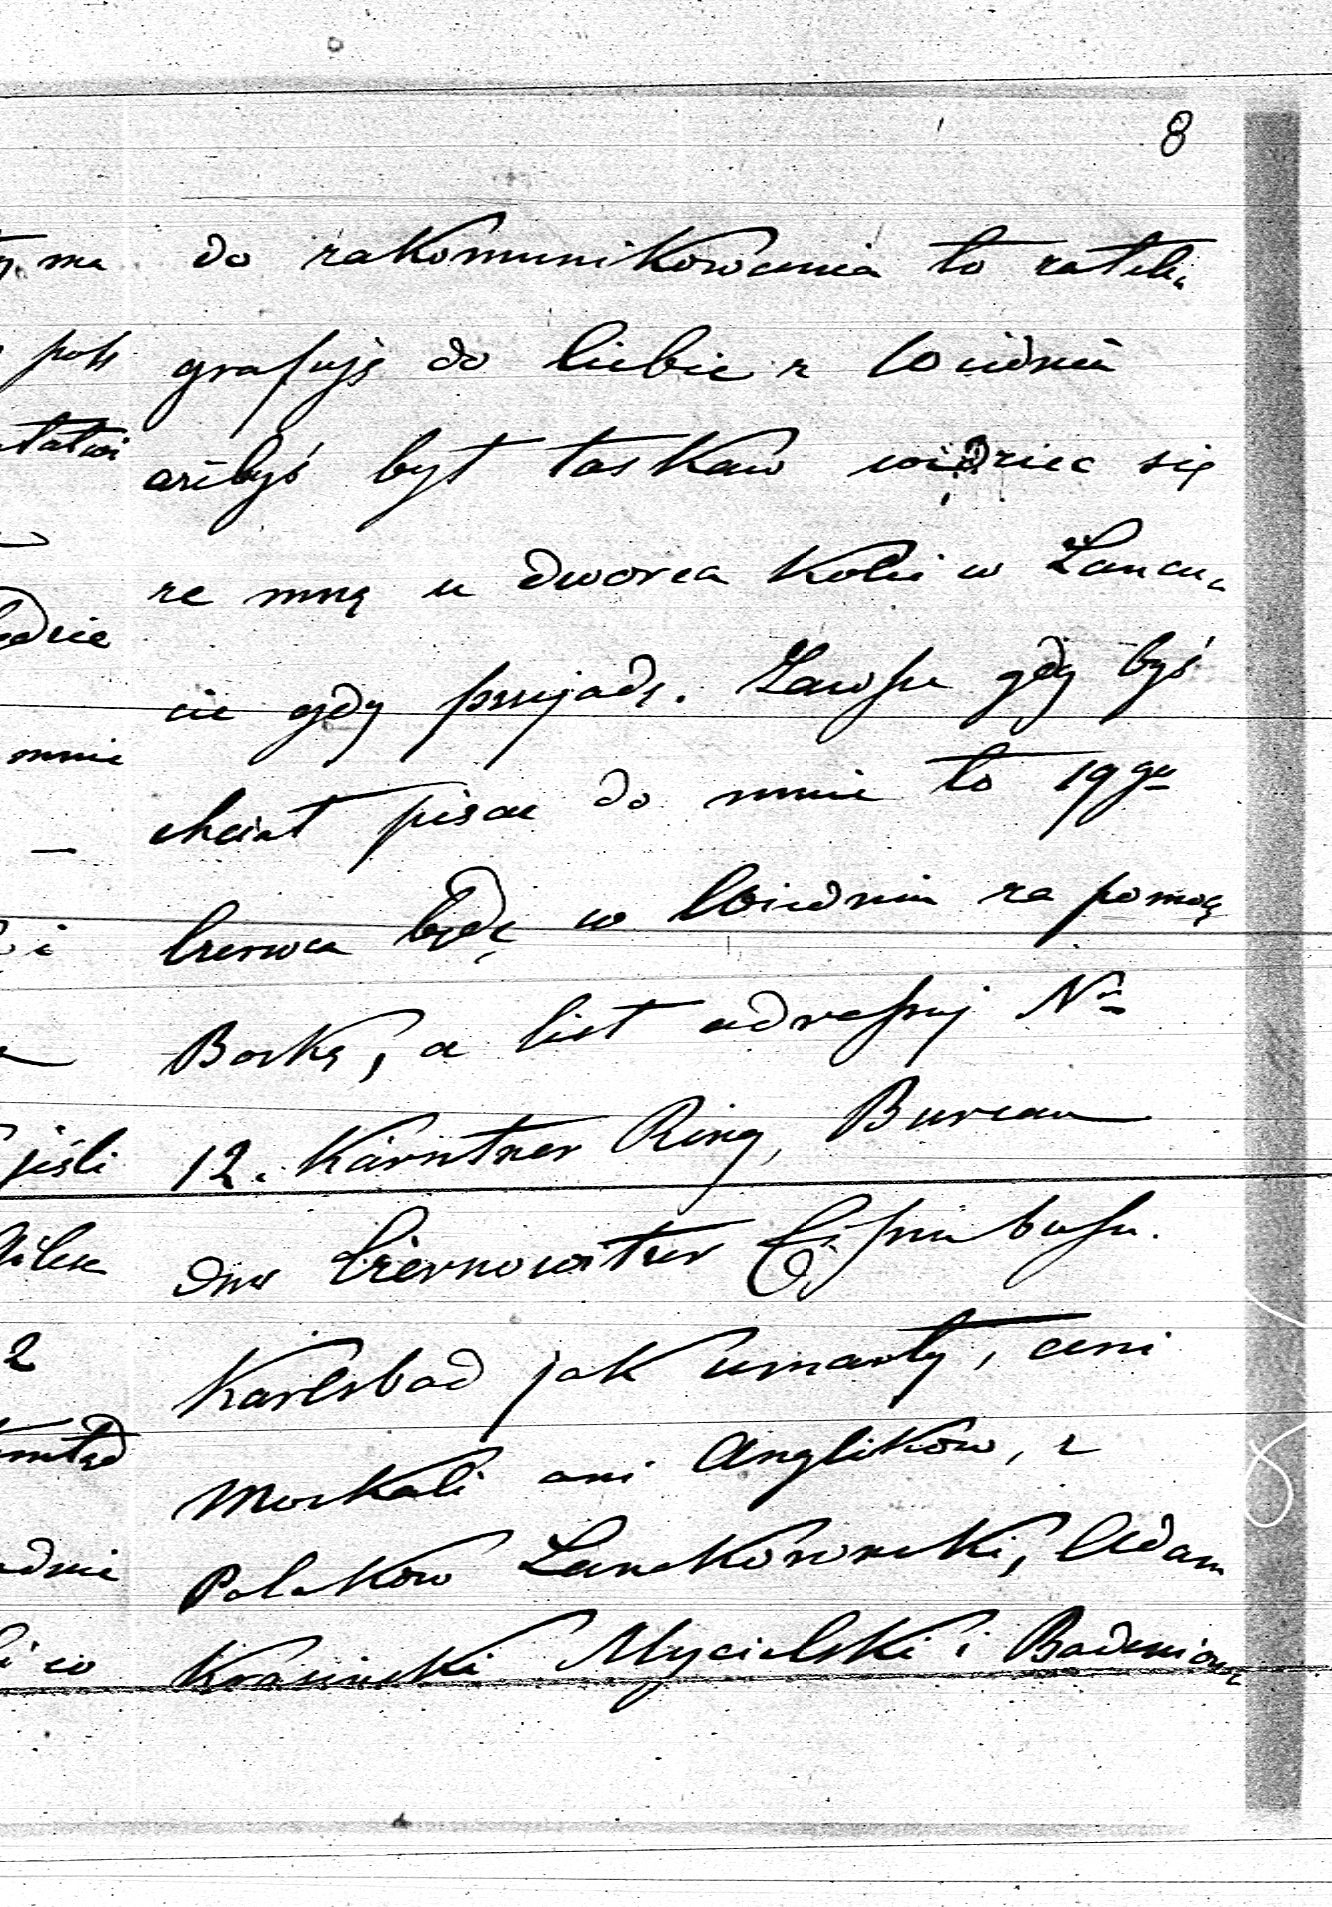 8
do zakomunikowania to zatele,
grafuję do Ciebie z Wiednia
ażebyś był łaskaw widzieć się
ze mną u dworca Kolei w Łancu,
cie gdy przyjadę. Zawsze gdy byś
chciał pisać do mnie to 19go
Czerwca będę w Wiedniu za pomocą
Boską, a list adressuj No
12. Kärntner Ring, Bureau
der Czernowitzer
Karlsbad jak umarły, ani
Moskali ani Anglików, z
Polaków Lanckoroński, Adam
Krasiński Mycielski i Badeniowie
ma
mnie
i
jeśli
2